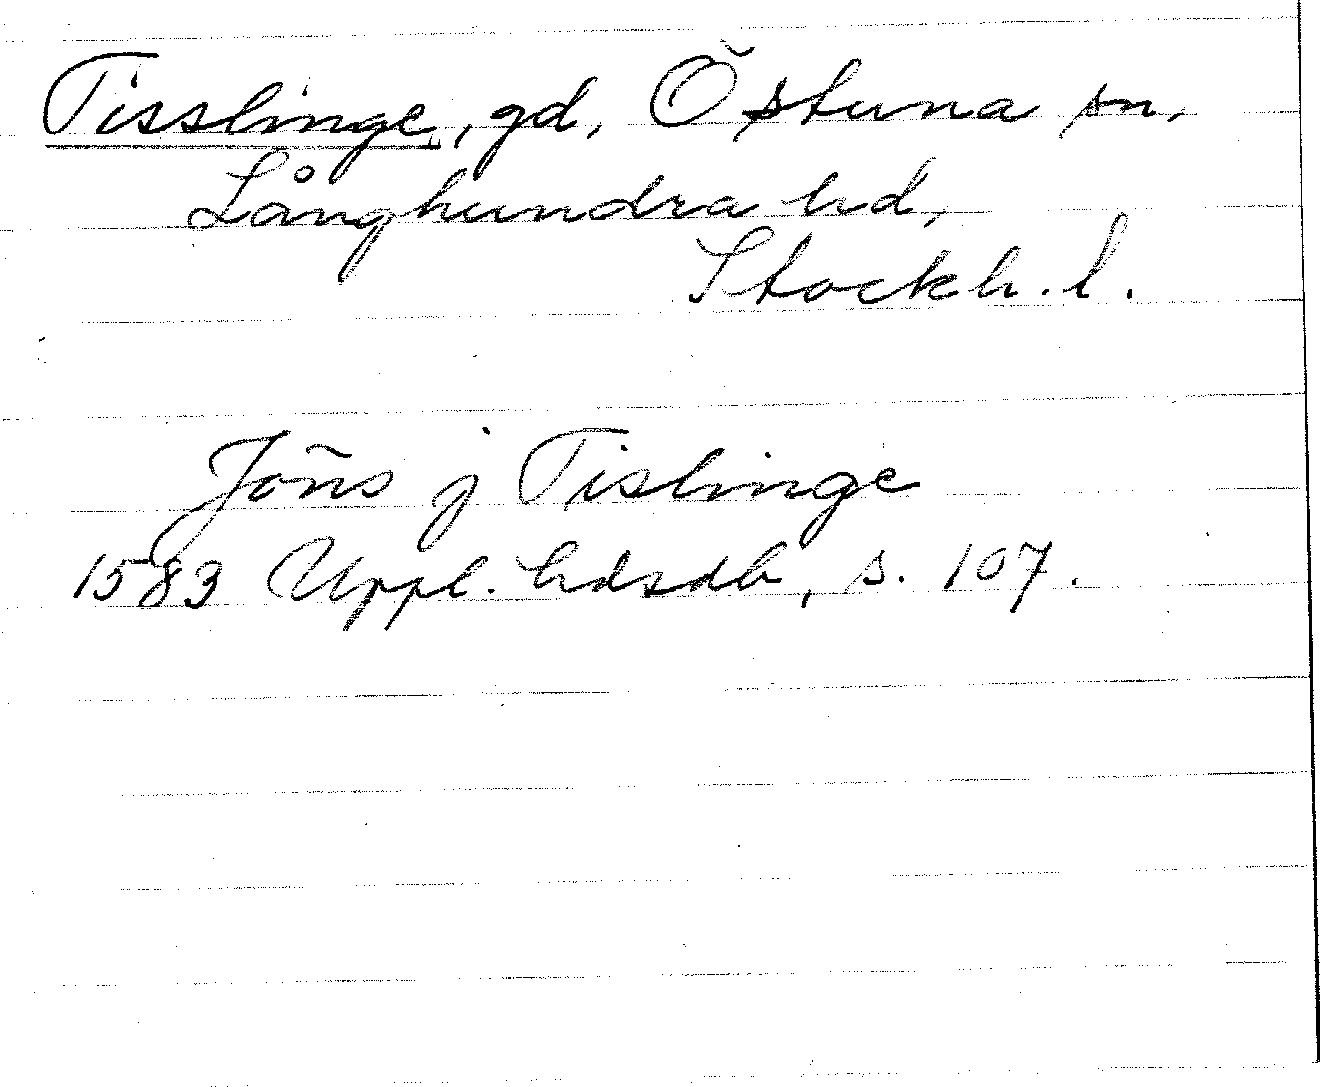 Tisslinge, gd, Östuna sn,
Långhundra hd,
Stockh. l.
Jöns j Tislinge
1583 Uppl. hdsdb, s. 107.